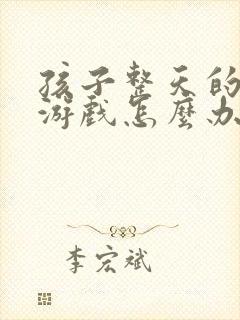 孩子整天的
游戏怎麽办
李宏斌